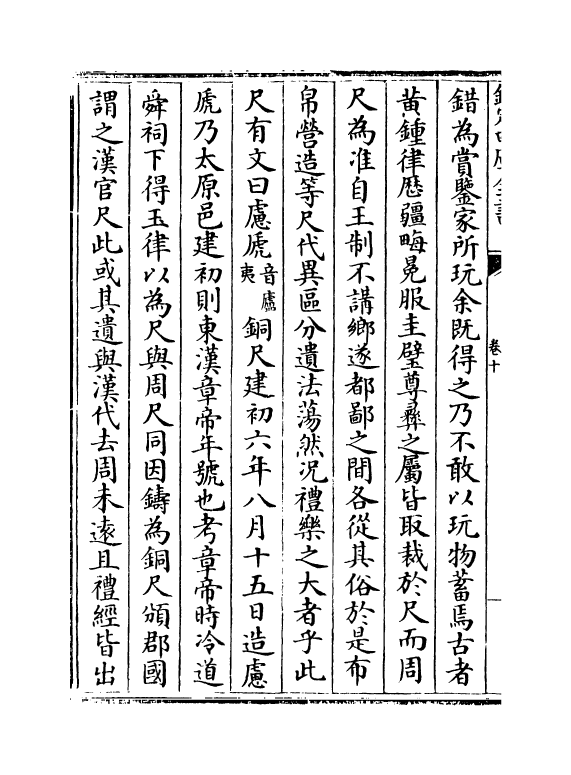 卷十
錯為賞鑒家所玩余既得之乃不敢以玩物蓄焉古者
黃鍾律厯疆畮冕服圭璧尊彞之屬皆取裁於尺而周
尺為准自王制不講鄉遂都鄙之間各從其俗於是布
帛營造等尺代異區分遺法蕩然况禮樂之大者乎此
尺有文曰慮俿音廬夷銅尺建初六年八月十五日造慮
俿乃太原邑建初則東漢章帝年號也考章帝時冷道
舜祠下得玉律以為尺與周尺同因鑄為銅尺頒郡國
謂之漢官尺此或其遺與漢代去周未逺且禮經皆出